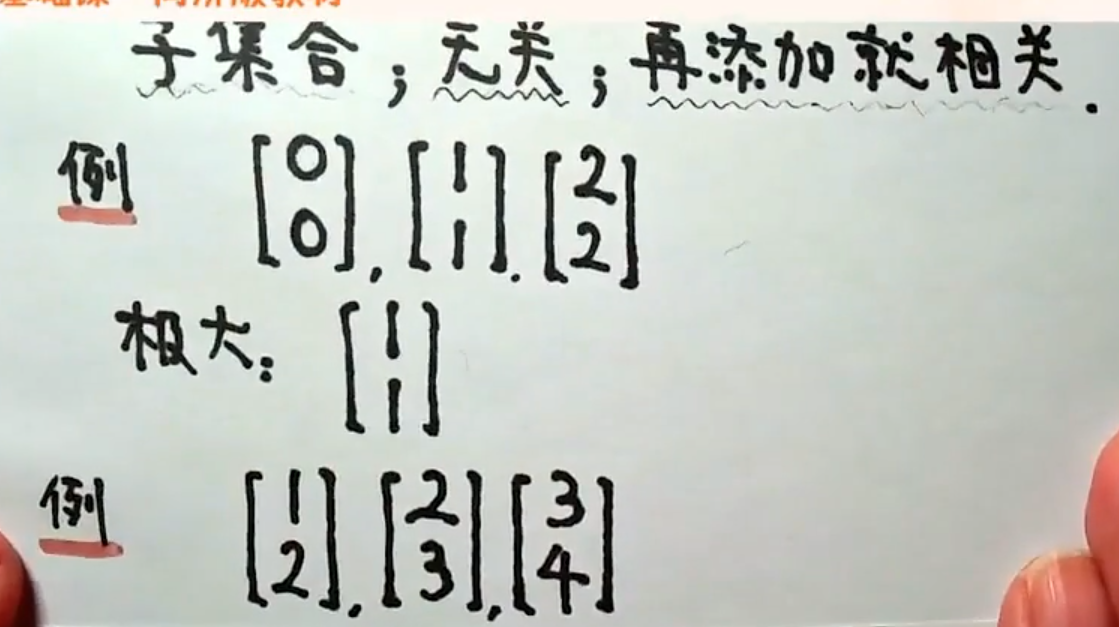 子集合；无关；再添加就相关.
例 [0 0], [1 1]. [2 2]
极大: [1 1]
例 [1 2], [2 3], [3 4]